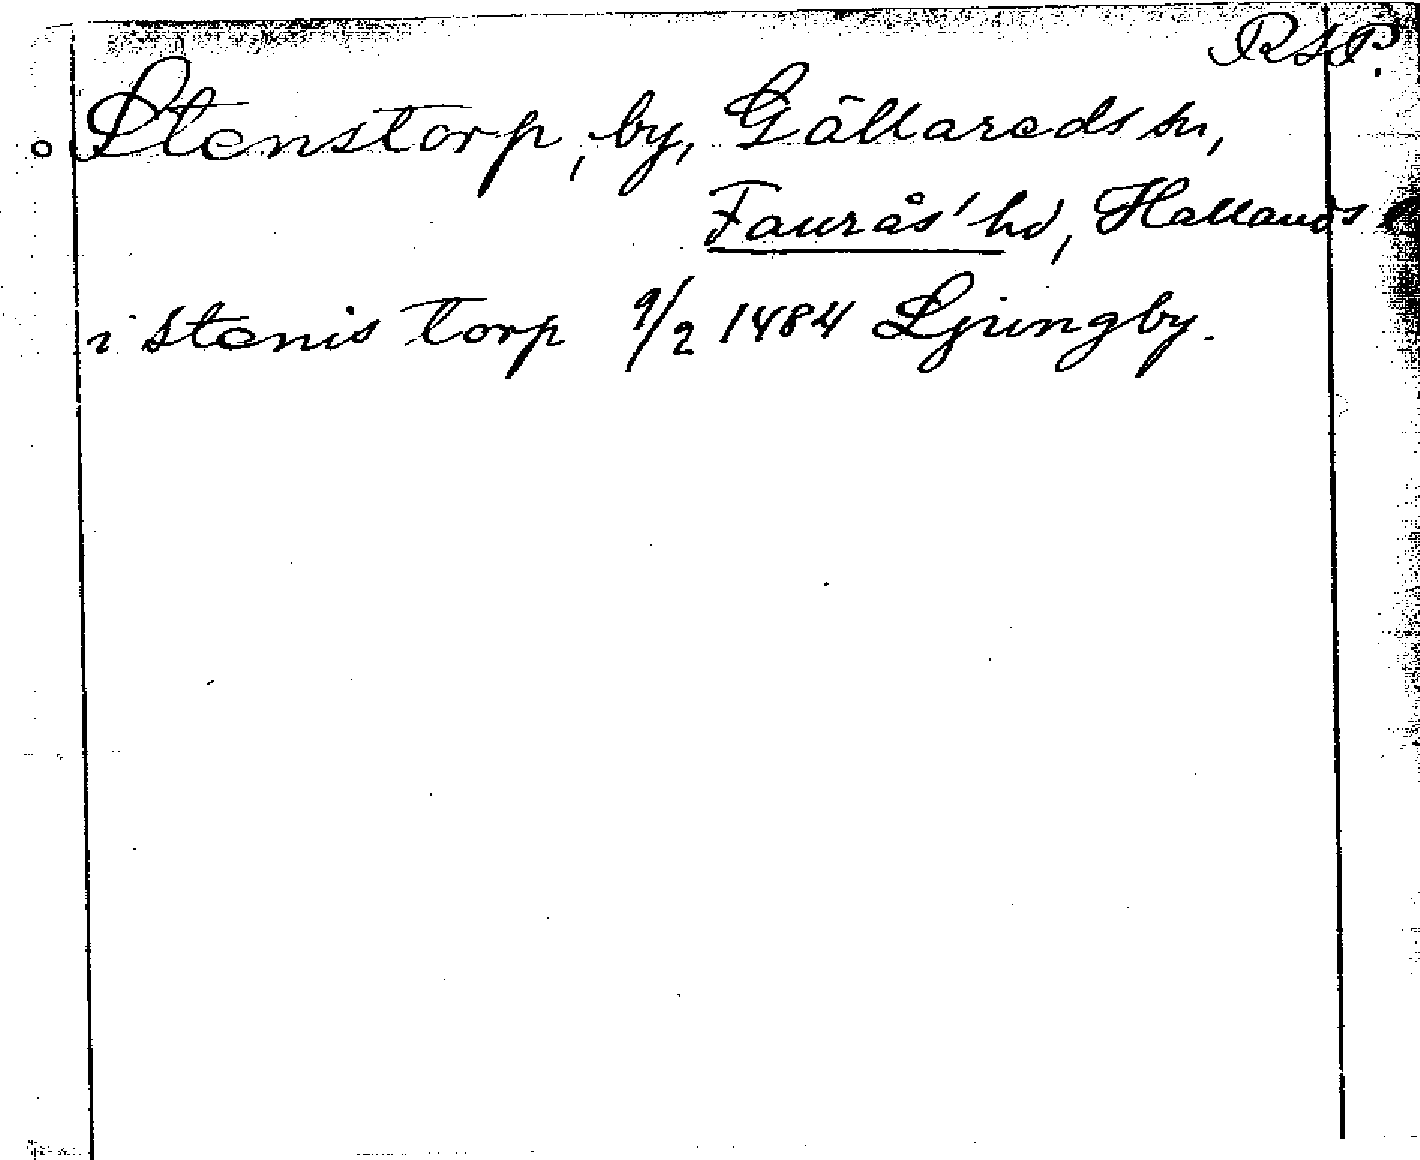 RSP.
Stenstorp, by, Gällareds sn,
Faurås' hd, Hallands
i stenis torp 9/2 1484 Ljungby.